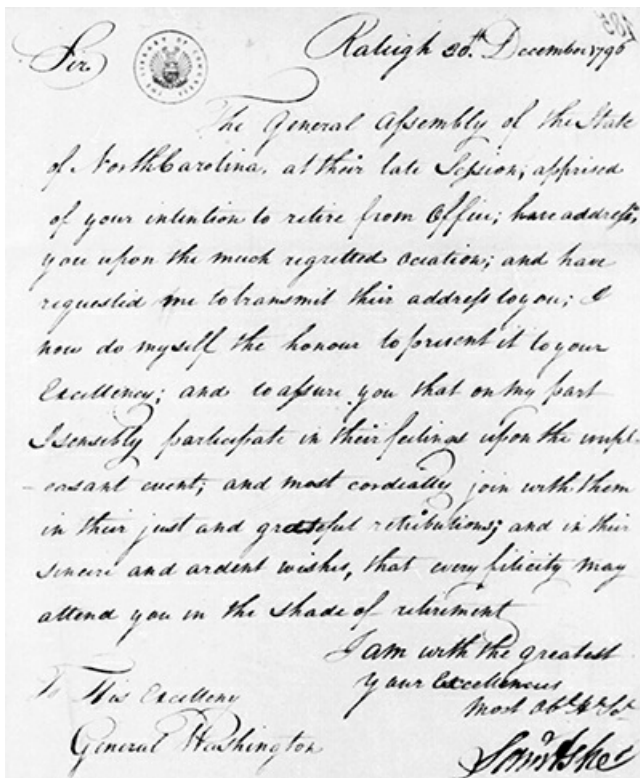 485
Raleigh 30th December 1796
Sir
THE LIBRARY OF CONGRESS
The General Assembly of the State
of North Carolina, at their late Session; apprised
of your intention to retire from Office; have address'd
you upon the much regretted occation; and have
requested me to transmit their address to you; I
now do myself the honour to present it to your
Excellency; and to assure you that on my part
I sensibly participate in their feilings upon the unpl-
-easant event; and most cordially join with them
in their just and grateful retributions; and in their
sincere and ardent wishes, that every filicity may
attend you in the shade of retirement
I am with the greatest
Your Excellencies
most Obt. Hl. Sert.
Saml Ashe
To His Excelleny
General Washington